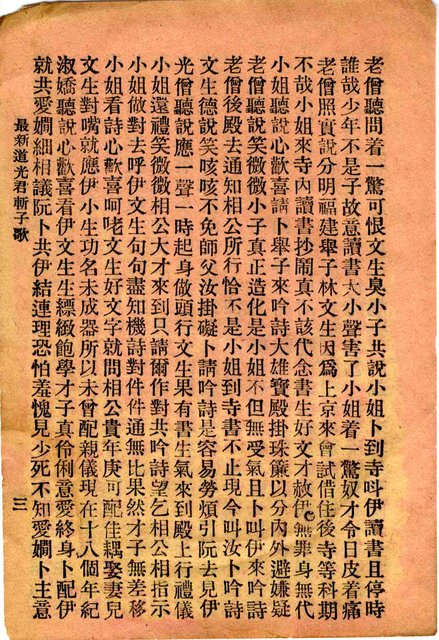 老僧聽問着一驚可恨文生臭小子共說小姐卜到寺呌伊讀書且停時
誰哉少年不是子故意讀書大小聲害了小姐着一驚奴才令日皮着痛
老僧照實說分明福建舉子林文生因爲上京來會試借住後寺等科期
不哉小姐來寺內讀書抄鬧真不該代念書生好文才赦伊無罪身無代
小姐聽說心歡喜請卜舉子來吟詩大雄寶殿掛珠簾以分內外避嫌疑
老僧聽說笑微微小子真正造化是小姐不但無受氣且卜叫伊來吟詩
老僧後殿去通知相公所行恰不是小姐到寺書不止現今叫汝卜吟詩
文生德說笑咳咳不免師父汝掛礙卜請吟詩是容易勞煩引阮去見伊
光僧聽說應一聲一時起身做頭行文生果有書生氣來到殿上行禮儀
小姐還禮笑微微相公大才來到只請爾作對共吟詩望乞相公相指示
小姐做對去呼伊文生句句盡知機詩對件件通無比果然才子無差移
小姐看詩心歡喜呵咾文生好文字就問相公貴年庚可配佳耦娶妻兒
文生對嘴就應伊小生功名未成器所以未曾配親儀現在十八個年紀
淑嬌聽說心歡喜看伊文生生縹緻飽學才子真伶俐意愛終身卜配伊
就共愛嫺細相議阮卜共伊結連理恐怕羞愧見少死不知愛嫺卜主意
最新道光君斬子歌
三